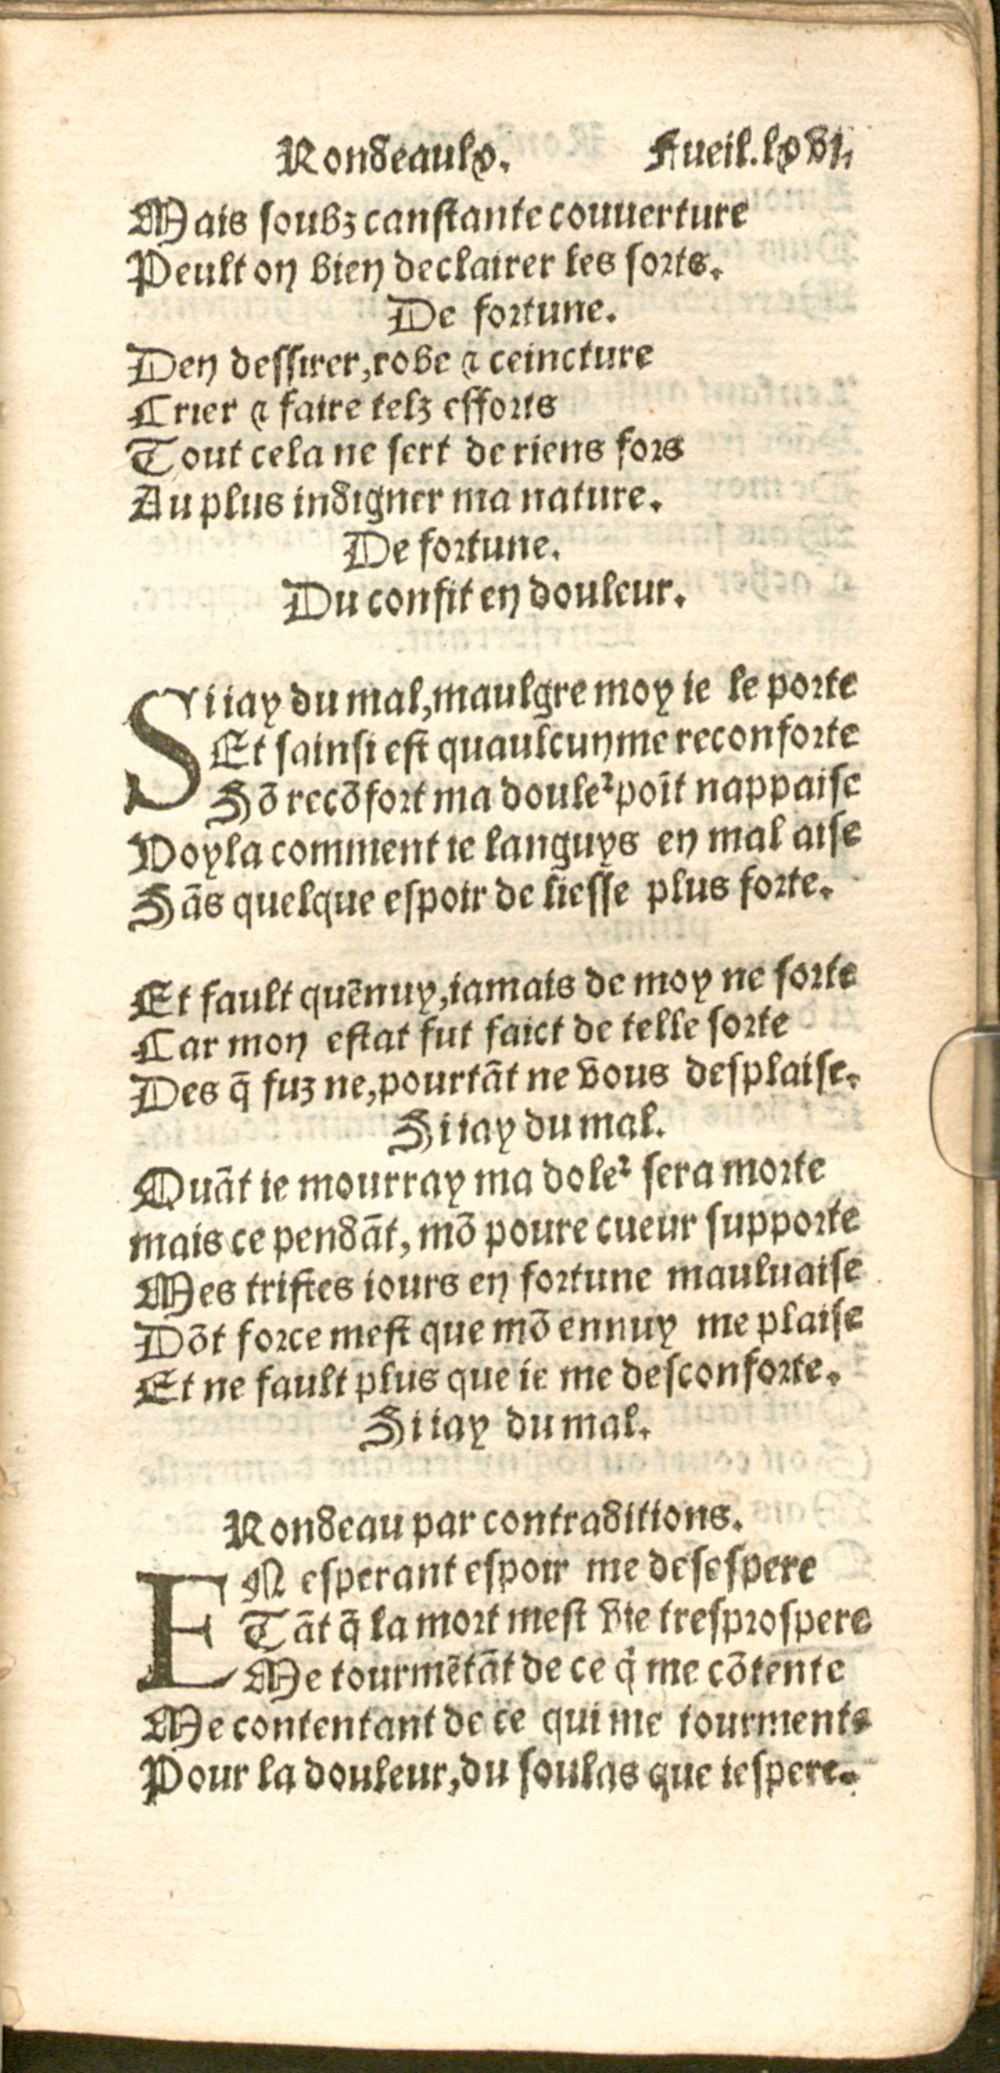 Rondeaulx. Fueil.lxvi.
Mais soubz canstante couuerture
Peult on bien declairer les sorts.
De fortune.
Den dessirer, robe ⁊ ceincture
Crier ⁊ faire telz efforts
Tout cela ne sert de riens fors
Au plus indigner ma nature.
De fortune.
Du confit en douleur.
Si iay du mal, maulgre moy ie le porte
Et sainsi est quaulcun me reconforte
Sõ recõfort ma douleꝛ poĩt nappaise
Voyla comment ie languys en mal aise
Sãs quelque espoir de liesse plus forte.
Et fault quẽnuy, iamais de moy ne sorte
Car mon estat fut faict de telle sorte
Des q̃ fuz ne, pourtãt ne vous desplaise.
Si iay du mal.
Quãt ie mourray ma doleꝛ sera morte
mais ce pendãt, mõ poure cueur supporte
Mes tristes iours en fortune mauluaise
Dõt force mest que mõ ennuy me plaise
Et ne fault plus que ie me desconforte.
Si iay du mal.
Rondeau par contraditions.
EN esperant espoir me desespere
Tãt q̃ la mort mest vie tresprospere
Me tourmẽtãt de ce q̇ me cõtente
Me contentant de ce qui me tourmente
Pour la douleur, du soulas que iespere.